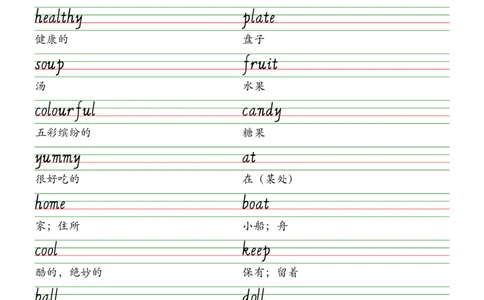 healthy plate
健康的 盘子
soup fruit
汤 水果
colourful candy
五彩缤纷的 糖果
yummy at
很好吃的 在（某处）
home boat
家；住所 小船；舟
cool keep
酷的、绝妙的 保有；留着
ball doll